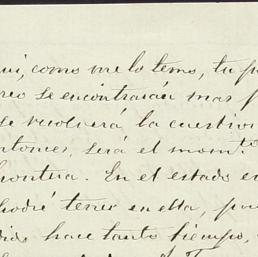 ui, como me lo temo, tu p
reo se encontrarán mas f
se resolverá la cuestion
ntonces, será el mom.to
frontera. En el estado e
podré tener en ella, por
dido hace tanto tiempo,